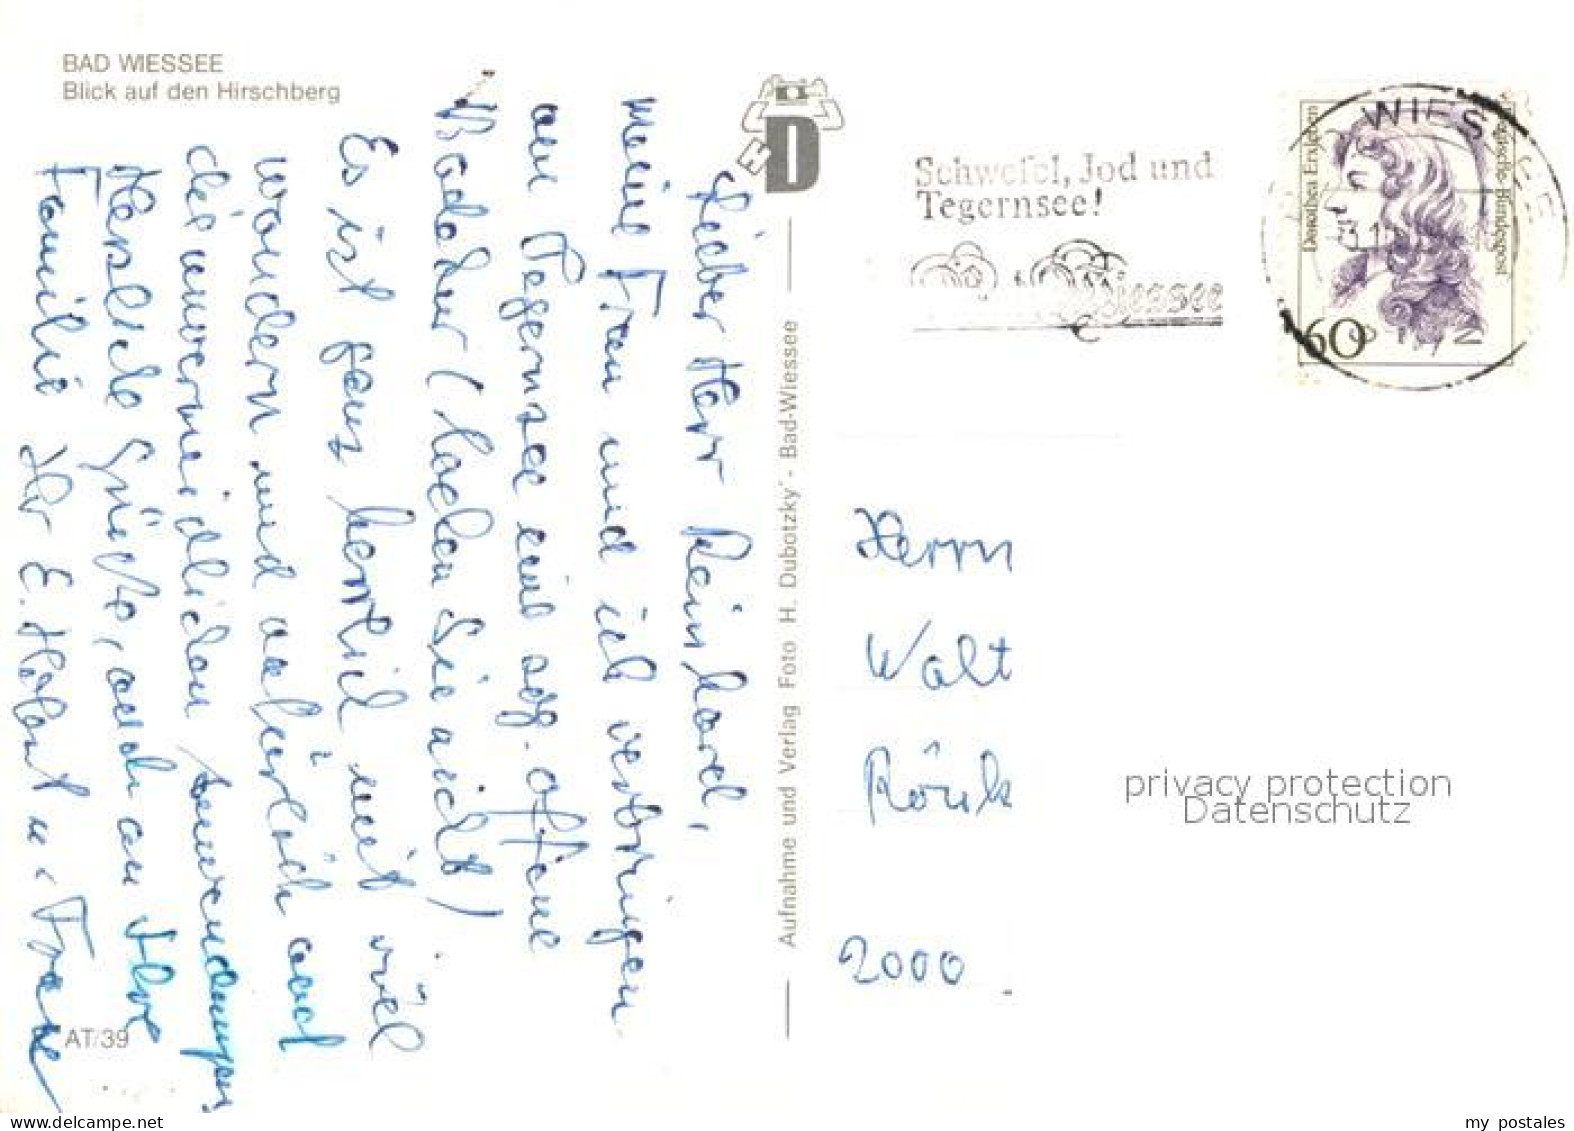 BAD WIESSEE
Blick auf den Hirschberg
Lieber Herr Reinhard,
meine Frau und ich verbringen
am Tegernsee eine sog. offene
Badekur (lachen Sie nicht)
Es ist ganz herrlich mit viel
Wandern und natürlich auch
die unvermeidlichen Anwendungen
Herzliche Grüße, auch an Ihre
Familie Ihr E. u. Frau
AT/39
Aufnahme und Verlag Foto H. Dubotzky - Bad-Wiessee
H D
Schwefel, Jod und
Tegernsee!
Wiessee
WIESSEE
Dorothea Erxleben
Deutsche Bundespost
60
Herrn
Walt
2000
privacy protection
Datenschutz
www.delcampe.net
my postales